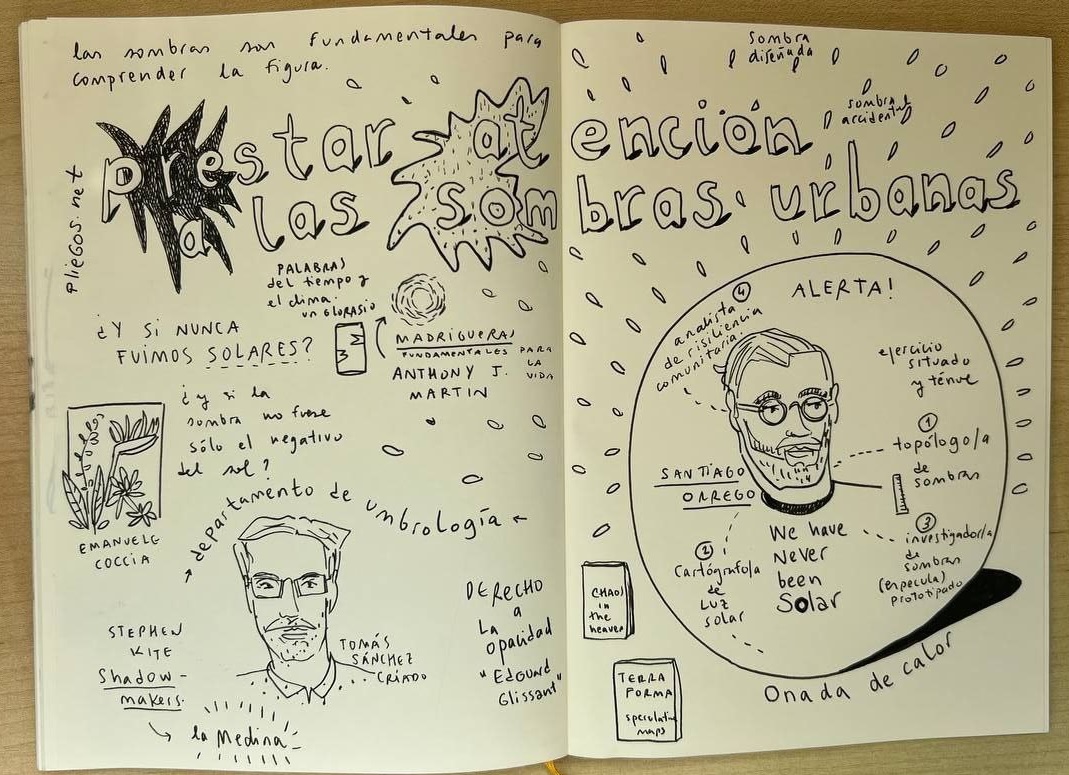 las sombras son fundamentales para
comprender la figura.
prestar atención
a las sombras urbanas
pliegos.net
PALABRAS
del tiempo y
el clima.
un GLORASIO
¿Y SI NUNCA
FUIMOS SOLARES?
MADRIGUERAS
FUNDAMENTALES PARA
LA
VIDA
ANTHONY J.
MARTIN
¿y si la
sombra no fuese
sólo el negativo
del sol?
EMANUELE
COCCIA
departamento de umbrología
STEPHEN
KITE
Shadow-
makers.
la Medina
TOMÁS
SÁNCHEZ
CRIADO
DERECHO
a
La
opacidad
"Edouard
Glissant"
Sombra
diseñada
sombra
accidental
ALERTA!
④
analista
de risiliencia
comunitaria
ejercicio
situado
y ténue
①
topólogo/a
de
sombras
SANTIAGO
ORREGO
②
Cartógrafo/a
de
Luz
solar
We have
never
been
Solar
③
investigador/a
de
sombras
(especula)
prototipado
CHAOS
in
the
heavens
TERRA
FORMA
speculative
maps
Onada de calor